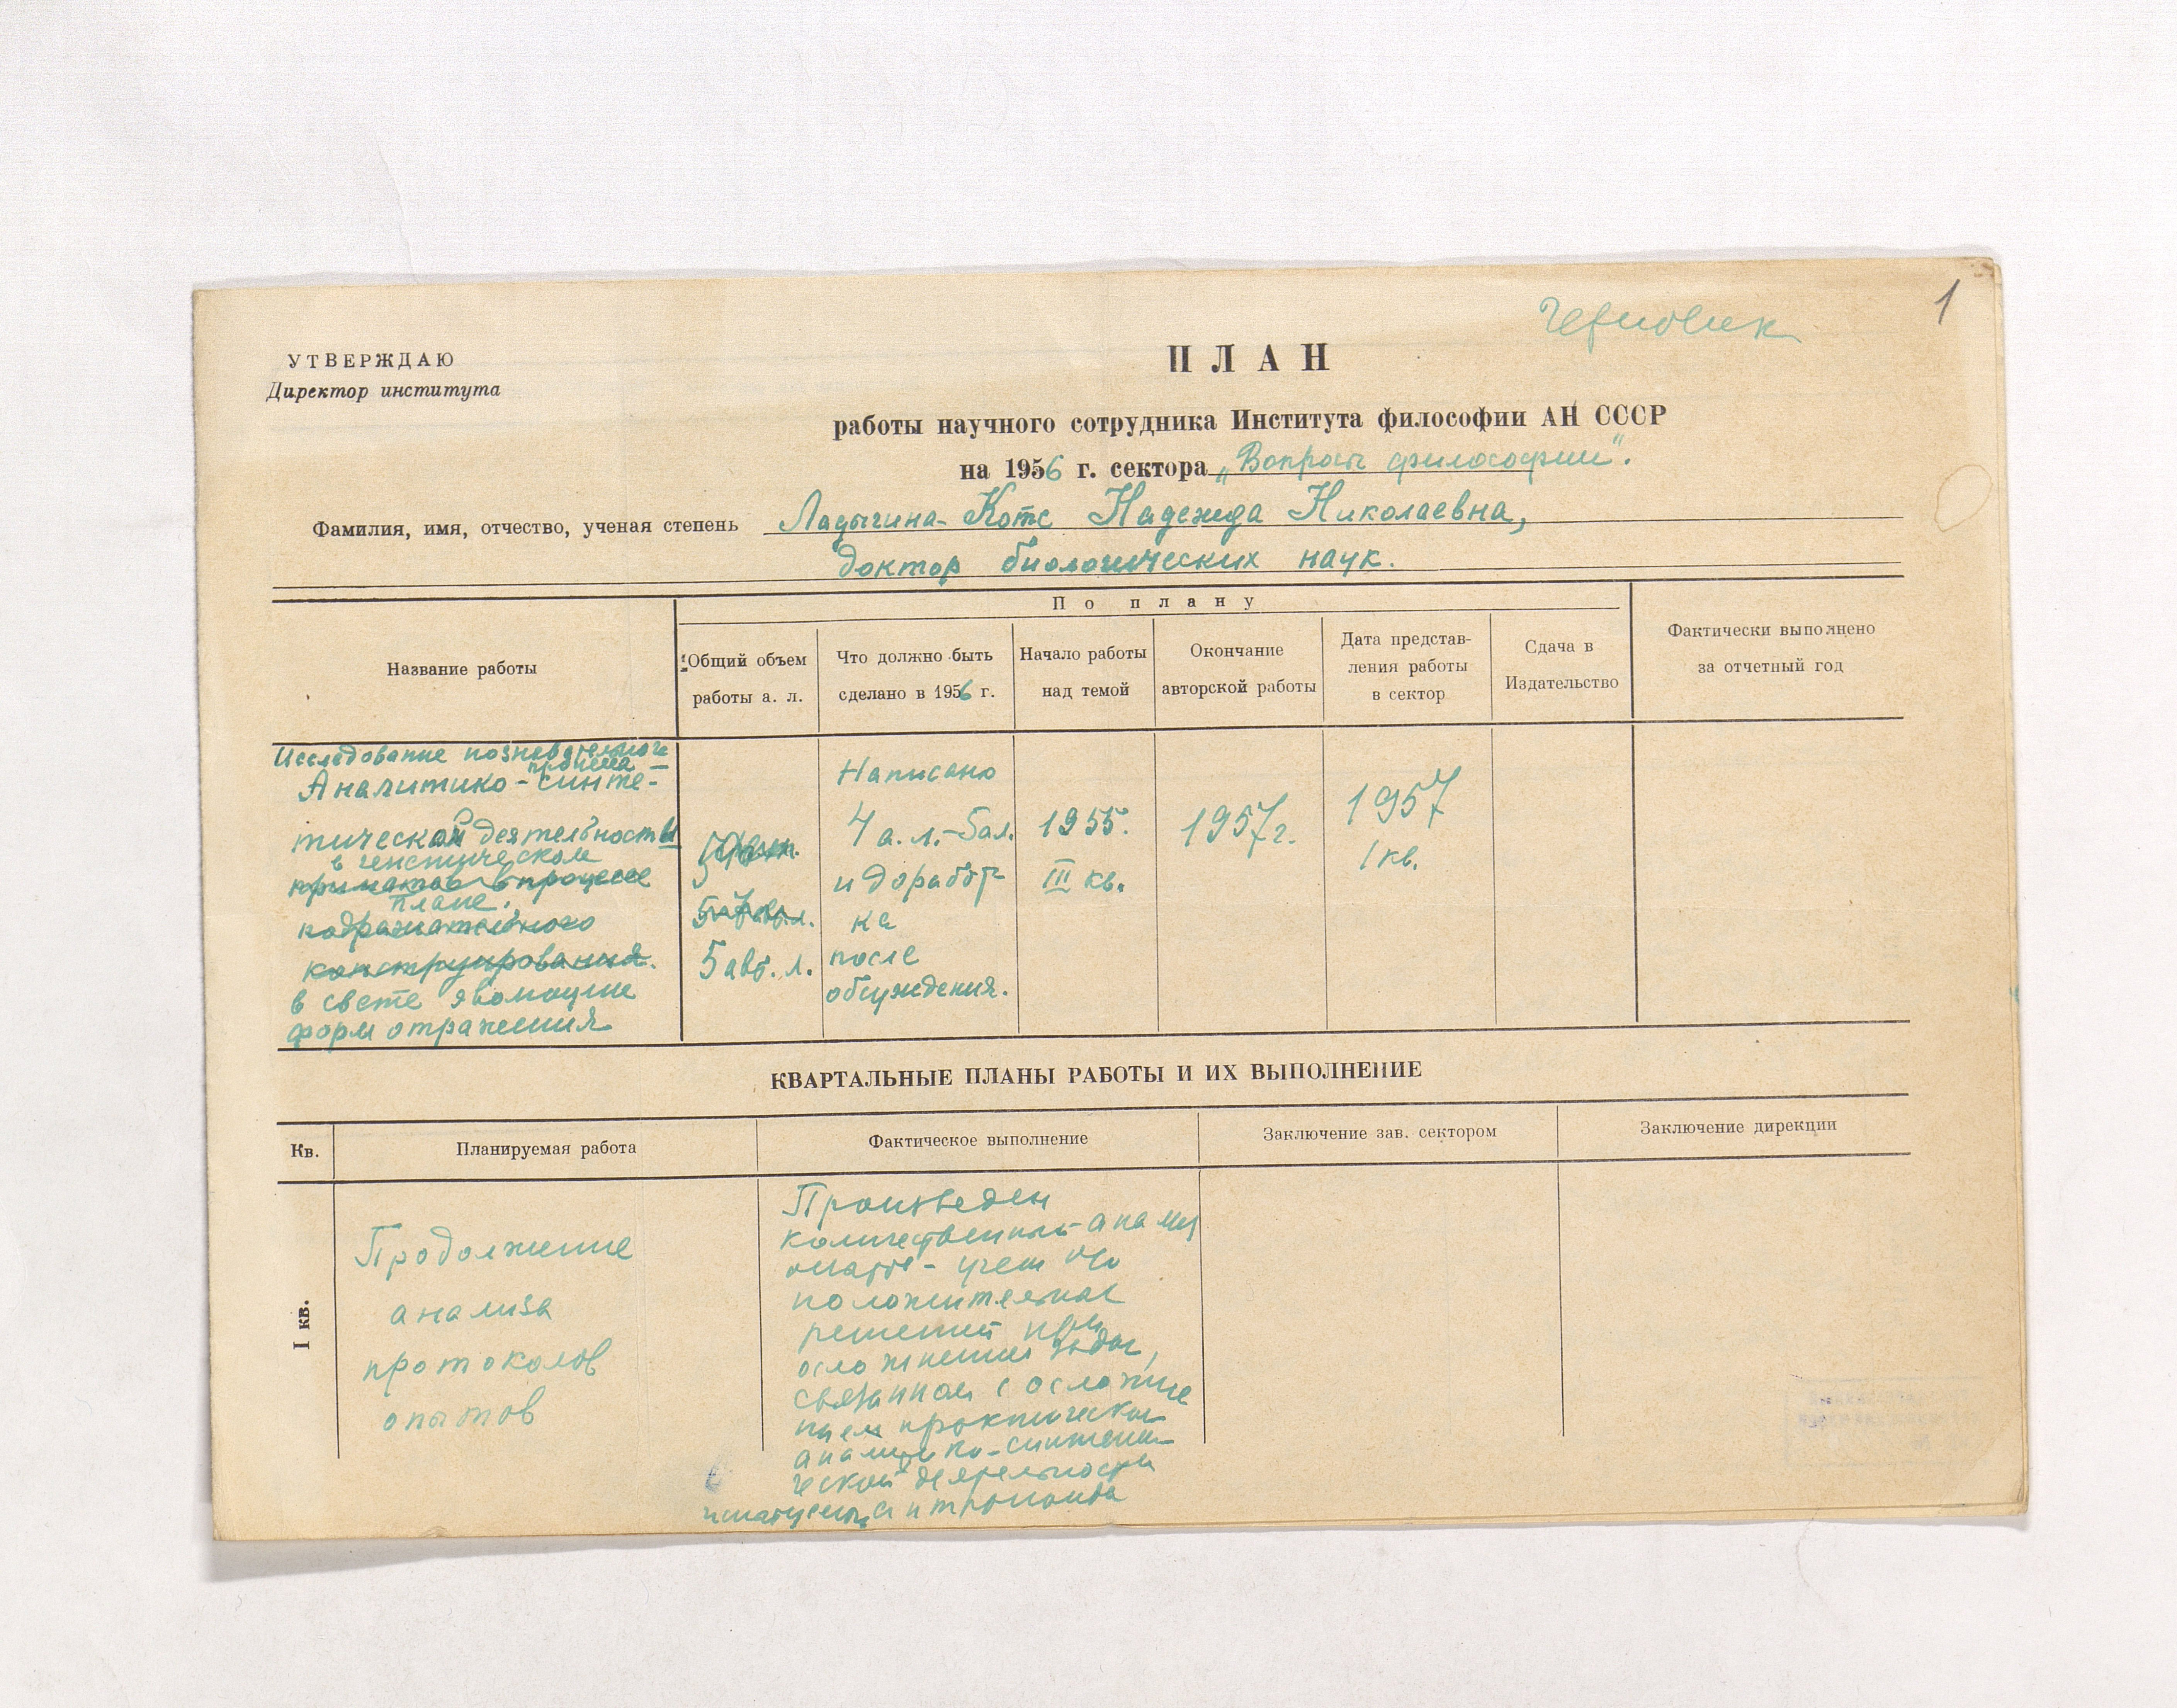 Черновик
1
УТВЕРЖДАЮ
Директор института
ПЛАН
работы научного сотрудника Института философии АН СССР
на 1956 г. сектора „Вопросы философии".
Фамилия, имя, отчество, ученая степень Ладыгина-Котс Надежда Николаевна,
доктор биологических наук.
Название работы
По плану
Общий объем
работы а. л.
Что должно быть
сделано в 1956 г.
Начало работы
над темой
Окончание
авторской работы
Дата представ-
ления работы
в сектор
Сдача в
Издательство
Фактически выполнено
за отчетный год
Исследование познавательного
процесса
Аналитико-синте-
тической деятельности
в генетическом
приматов в процессе
плане.
подражательного
конструирования.
в свете эволюции
форм отражения
5 авт. л.
Написано
4 а. л.-5 а л.
и доработ
ка
после
обсуждения.
1955.
III кв.
1957 г.
1957
1 кв.
КВАРТАЛЬНЫЕ ПЛАНЫ РАБОТЫ И ИХ ВЫПОЛНЕНИЕ
Кв.
Планируемая работа
Фактическое выполнение
Заключение зав. сектором
Заключение дирекции
I кв.
Продолжение
анализа
протоколов
опытов
Произведен
количественный анализ
учет
положительных
решений при
осложнении задач,
связанной с осложне
нием практической
аналитико-синтети-
ческой деятельности